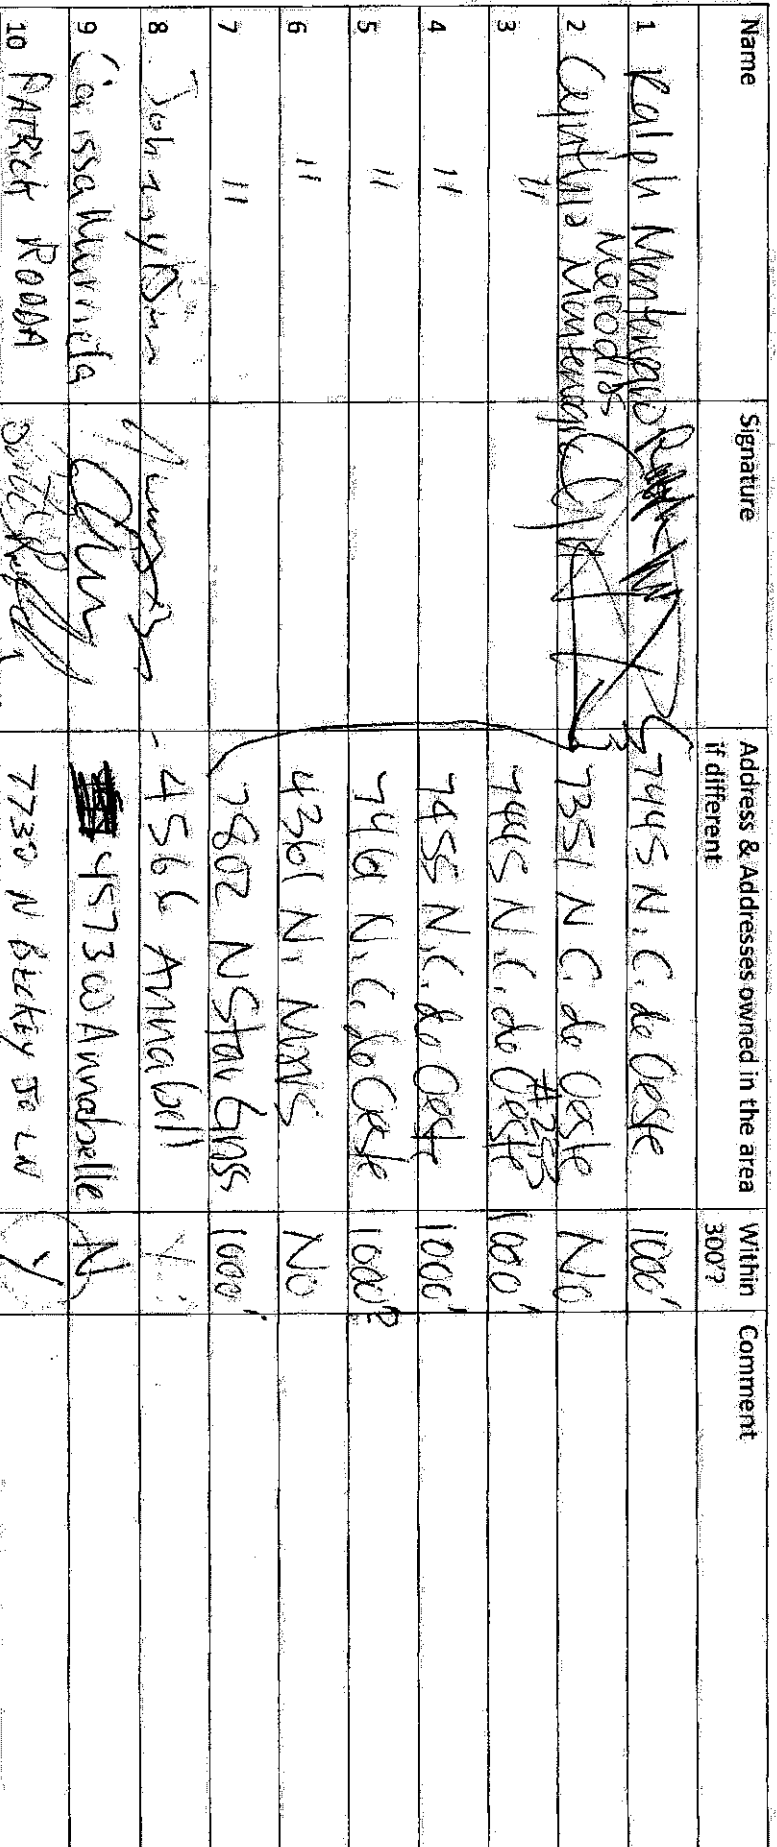 Name Signature Address & Addresses owned in the area if different Within 300'? Comment
1 Ralph Montenegro 7445 N. C. de Oeste 1000'
2 Cynthia Merodias Montenegro 7351 N C. de Oeste No
3 " 7445 N. C. de Oeste #253 1000'
4 " 7455 N. C. de Oeste 1000'
5 " 7461 N. C. de Oeste 1000'?
6 " 4361 N. No
7 " 7802 N Star Grass 1000'
8 Johnny 4566 Annabell Y
9 Carissa Murrieta 4573 W Annabelle N
10 PATRICK ROODA 7730 N BECKEY JO LN Y